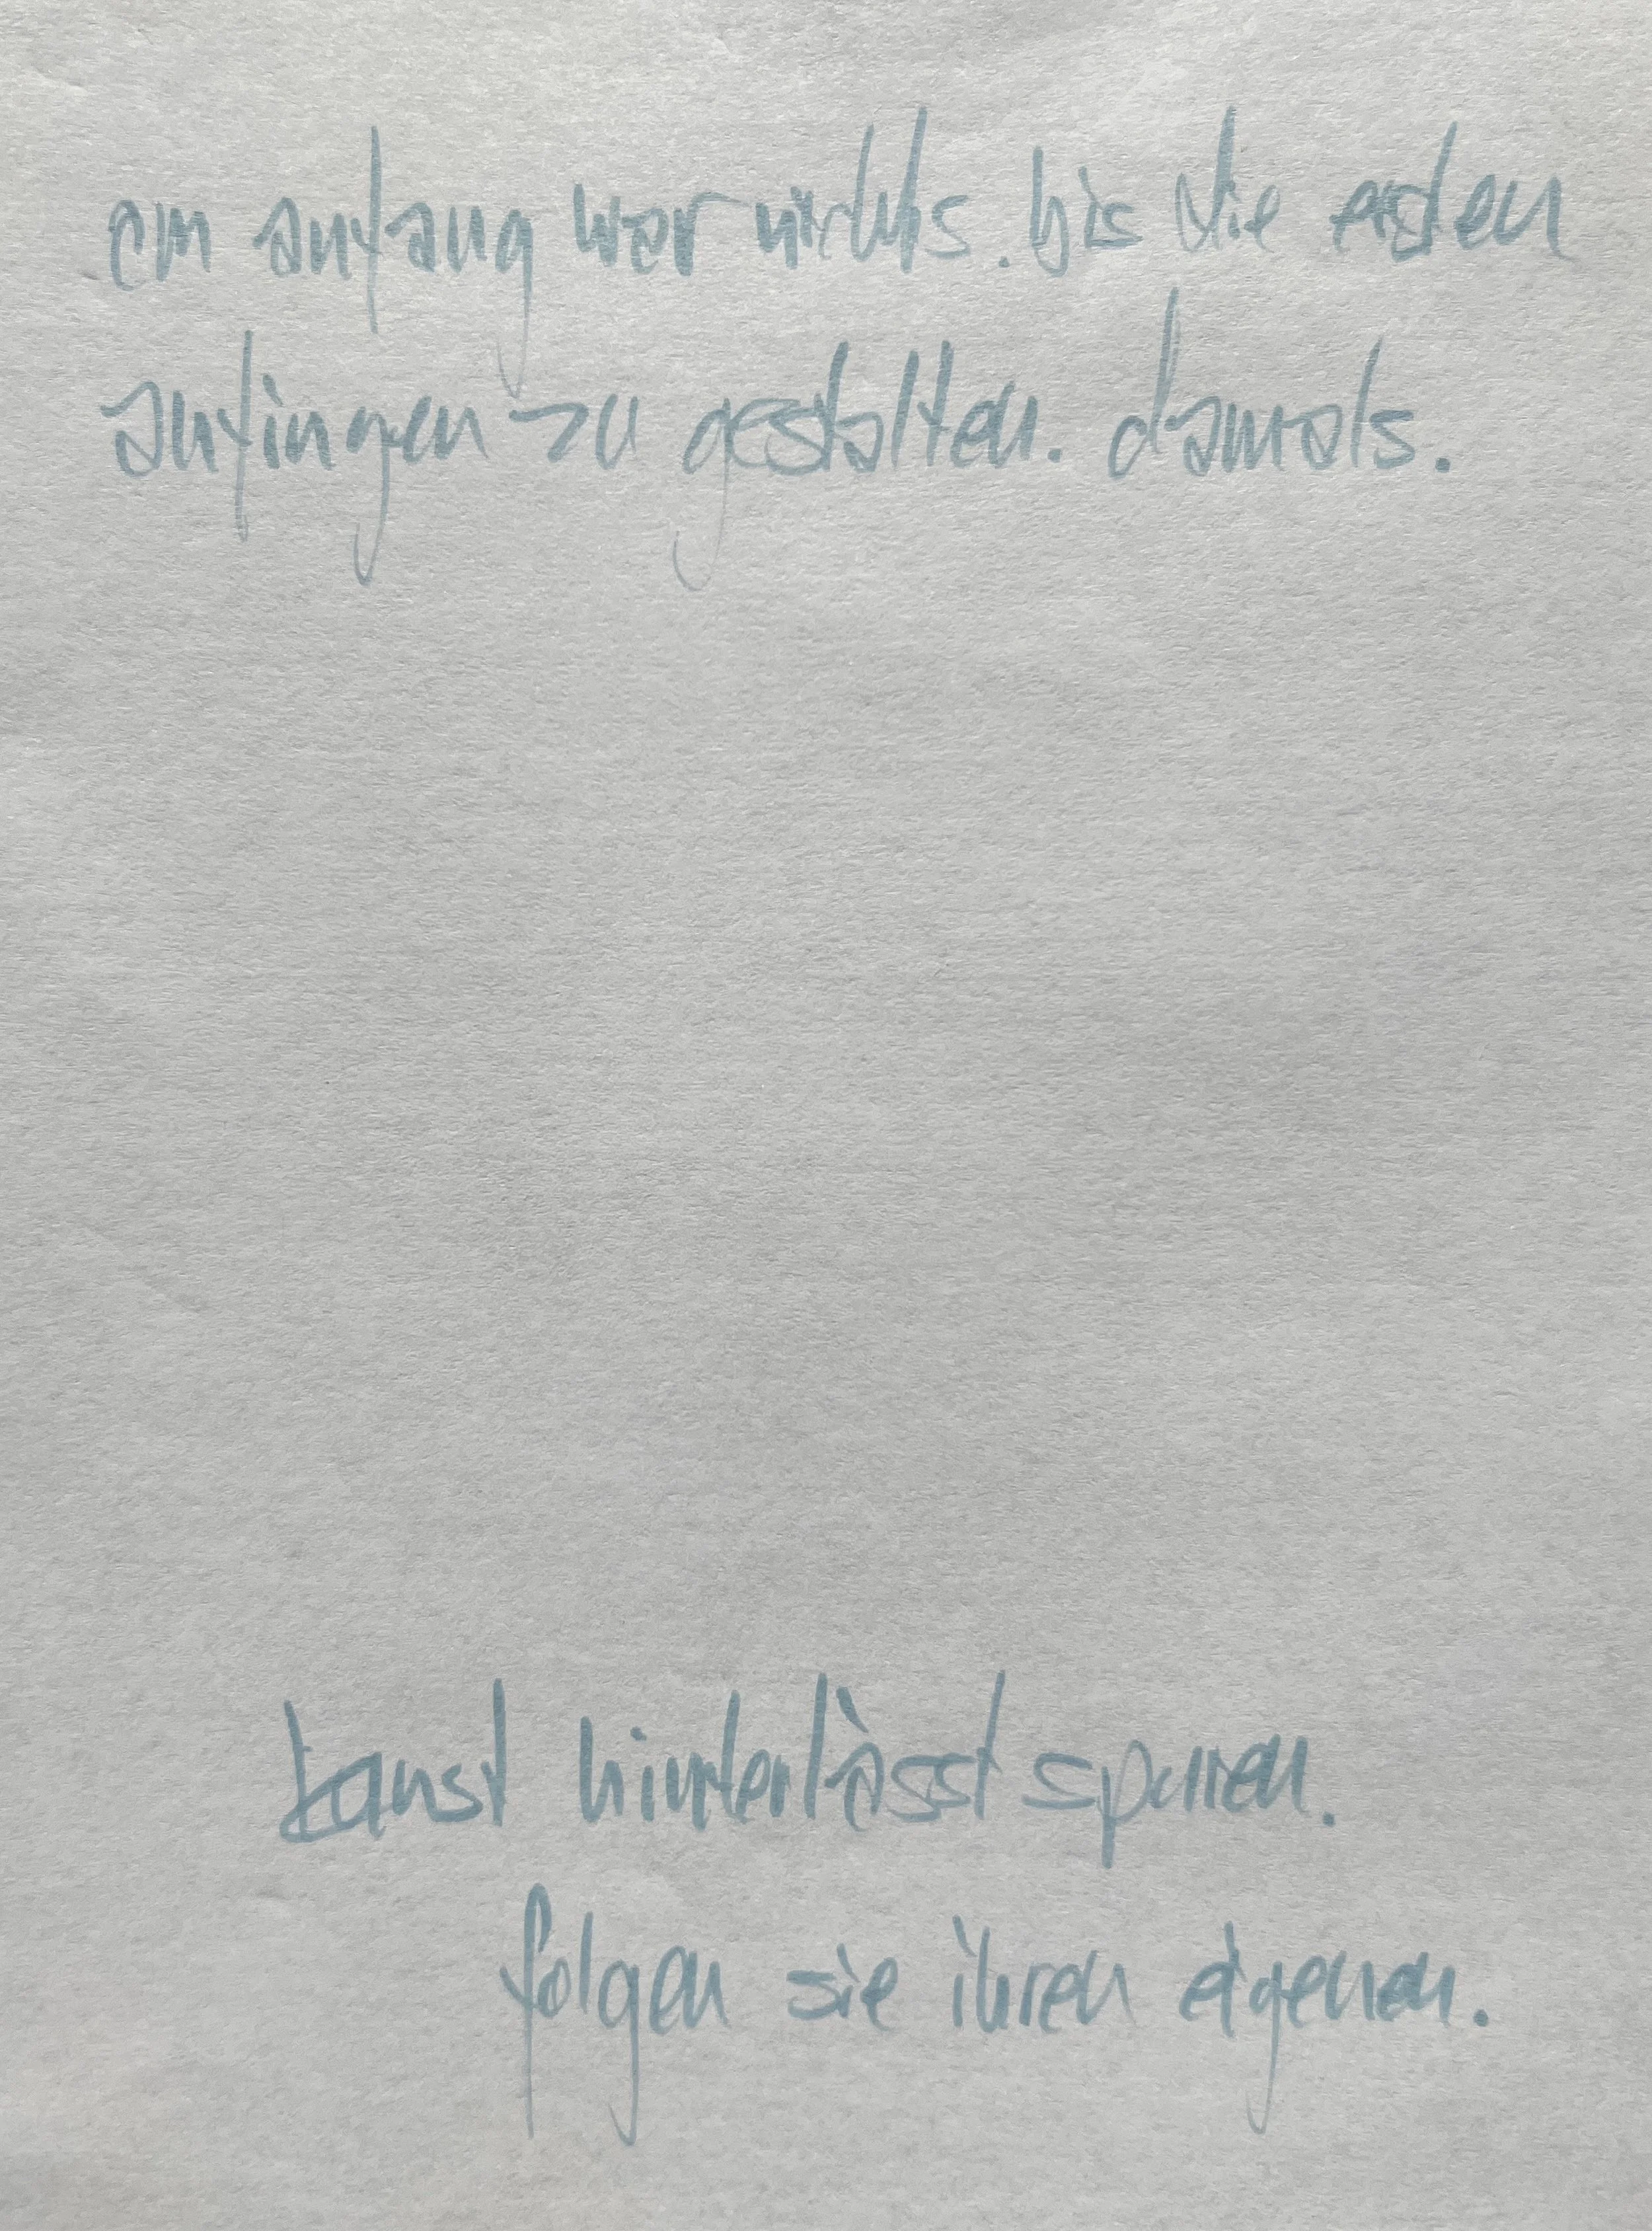 am anfang war nichts. bis die ersten
anfingen zu gestalten. damals.
kunst hinterlässt spuren.
folgen sie ihren eigenen.